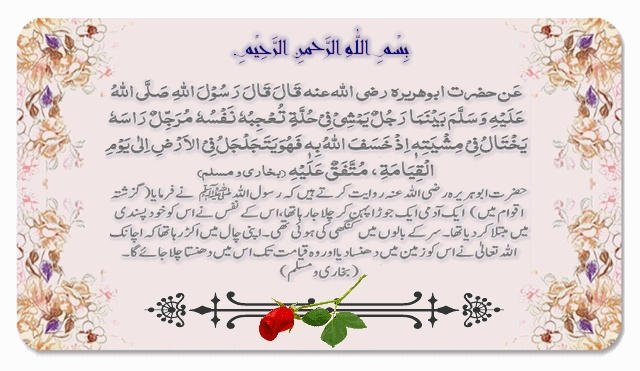 بِسْمِ اللّٰهِ الرَّحْمٰنِ الرَّحِيْمِ
عَن حضرت ابوهریره رضی الله عنه قَالَ قَالَ رَسُوْلَ اللهِ صَلَّى اللهُ
عَلَيْهِ وَسَلَّمَ بَيْنَمَا رَجُلٌ يَمْشِىْ فِىْ حُلَّةٍ تُعْجِبُهٗ نَفْسُهٗ مُرَجِّلٌ رَاسَهٗ
يَخْتَالُ فِىْ مِشْيَتِهٖ اِذْ خَسَفَ اللهُ بِهٖ فَهُوَ يَتَجَلْجَلُ فِى الْاَرْضِ اِلٰى يَوْمِ
الْقِيَامَةِ، مُتَّفَقٌ عَلَيْهِ (بخاری و مسلم)
حضرت ابوہریرہ رضی اللہ عنہ روایت کرتے ہیں کہ رسول اللہ ﷺ نے فرمایا (گزشتہ
اقوام میں) ایک آدمی ایک جوڑا پہن کر چلا جا رہا تھا، اس کے نفس نے اس کو خود پسندی
میں مبتلا کر دیا تھا۔ سر کے بالوں میں کنگھی کی ہوئی تھی۔ اپنی چال میں اکڑ رہا تھا کہ اچانک
اللہ تعالیٰ نے اس کو زمین میں دھنسا دیا اور وہ قیامت تک اس میں دھنستا چلا جائے گا۔
(بخاری و مسلم)